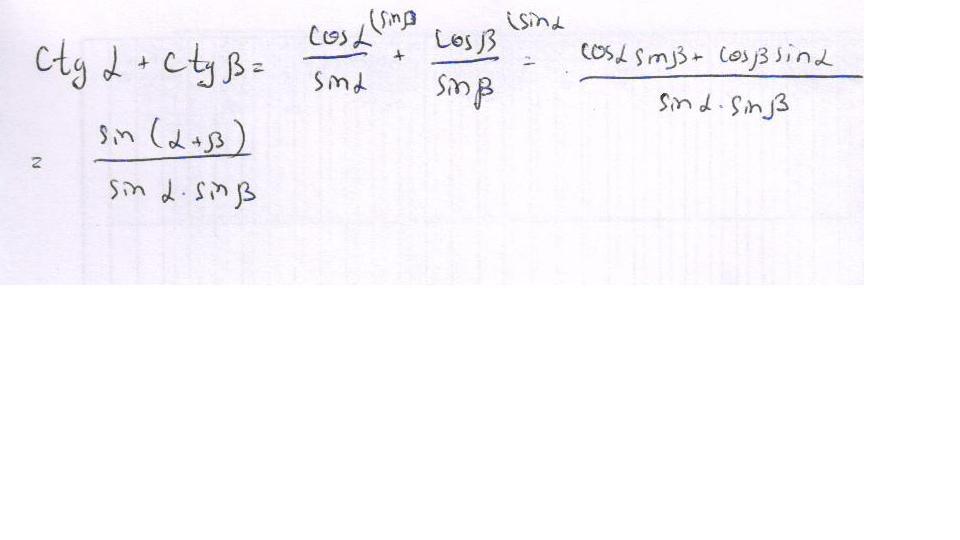 ctg α + ctg β = cosα (sinβ / sinα + cosβ (sinα / sinβ = cosα sinβ + cosβ sinα / sin α · sin β
= sin (α+β) / sin α · sin β